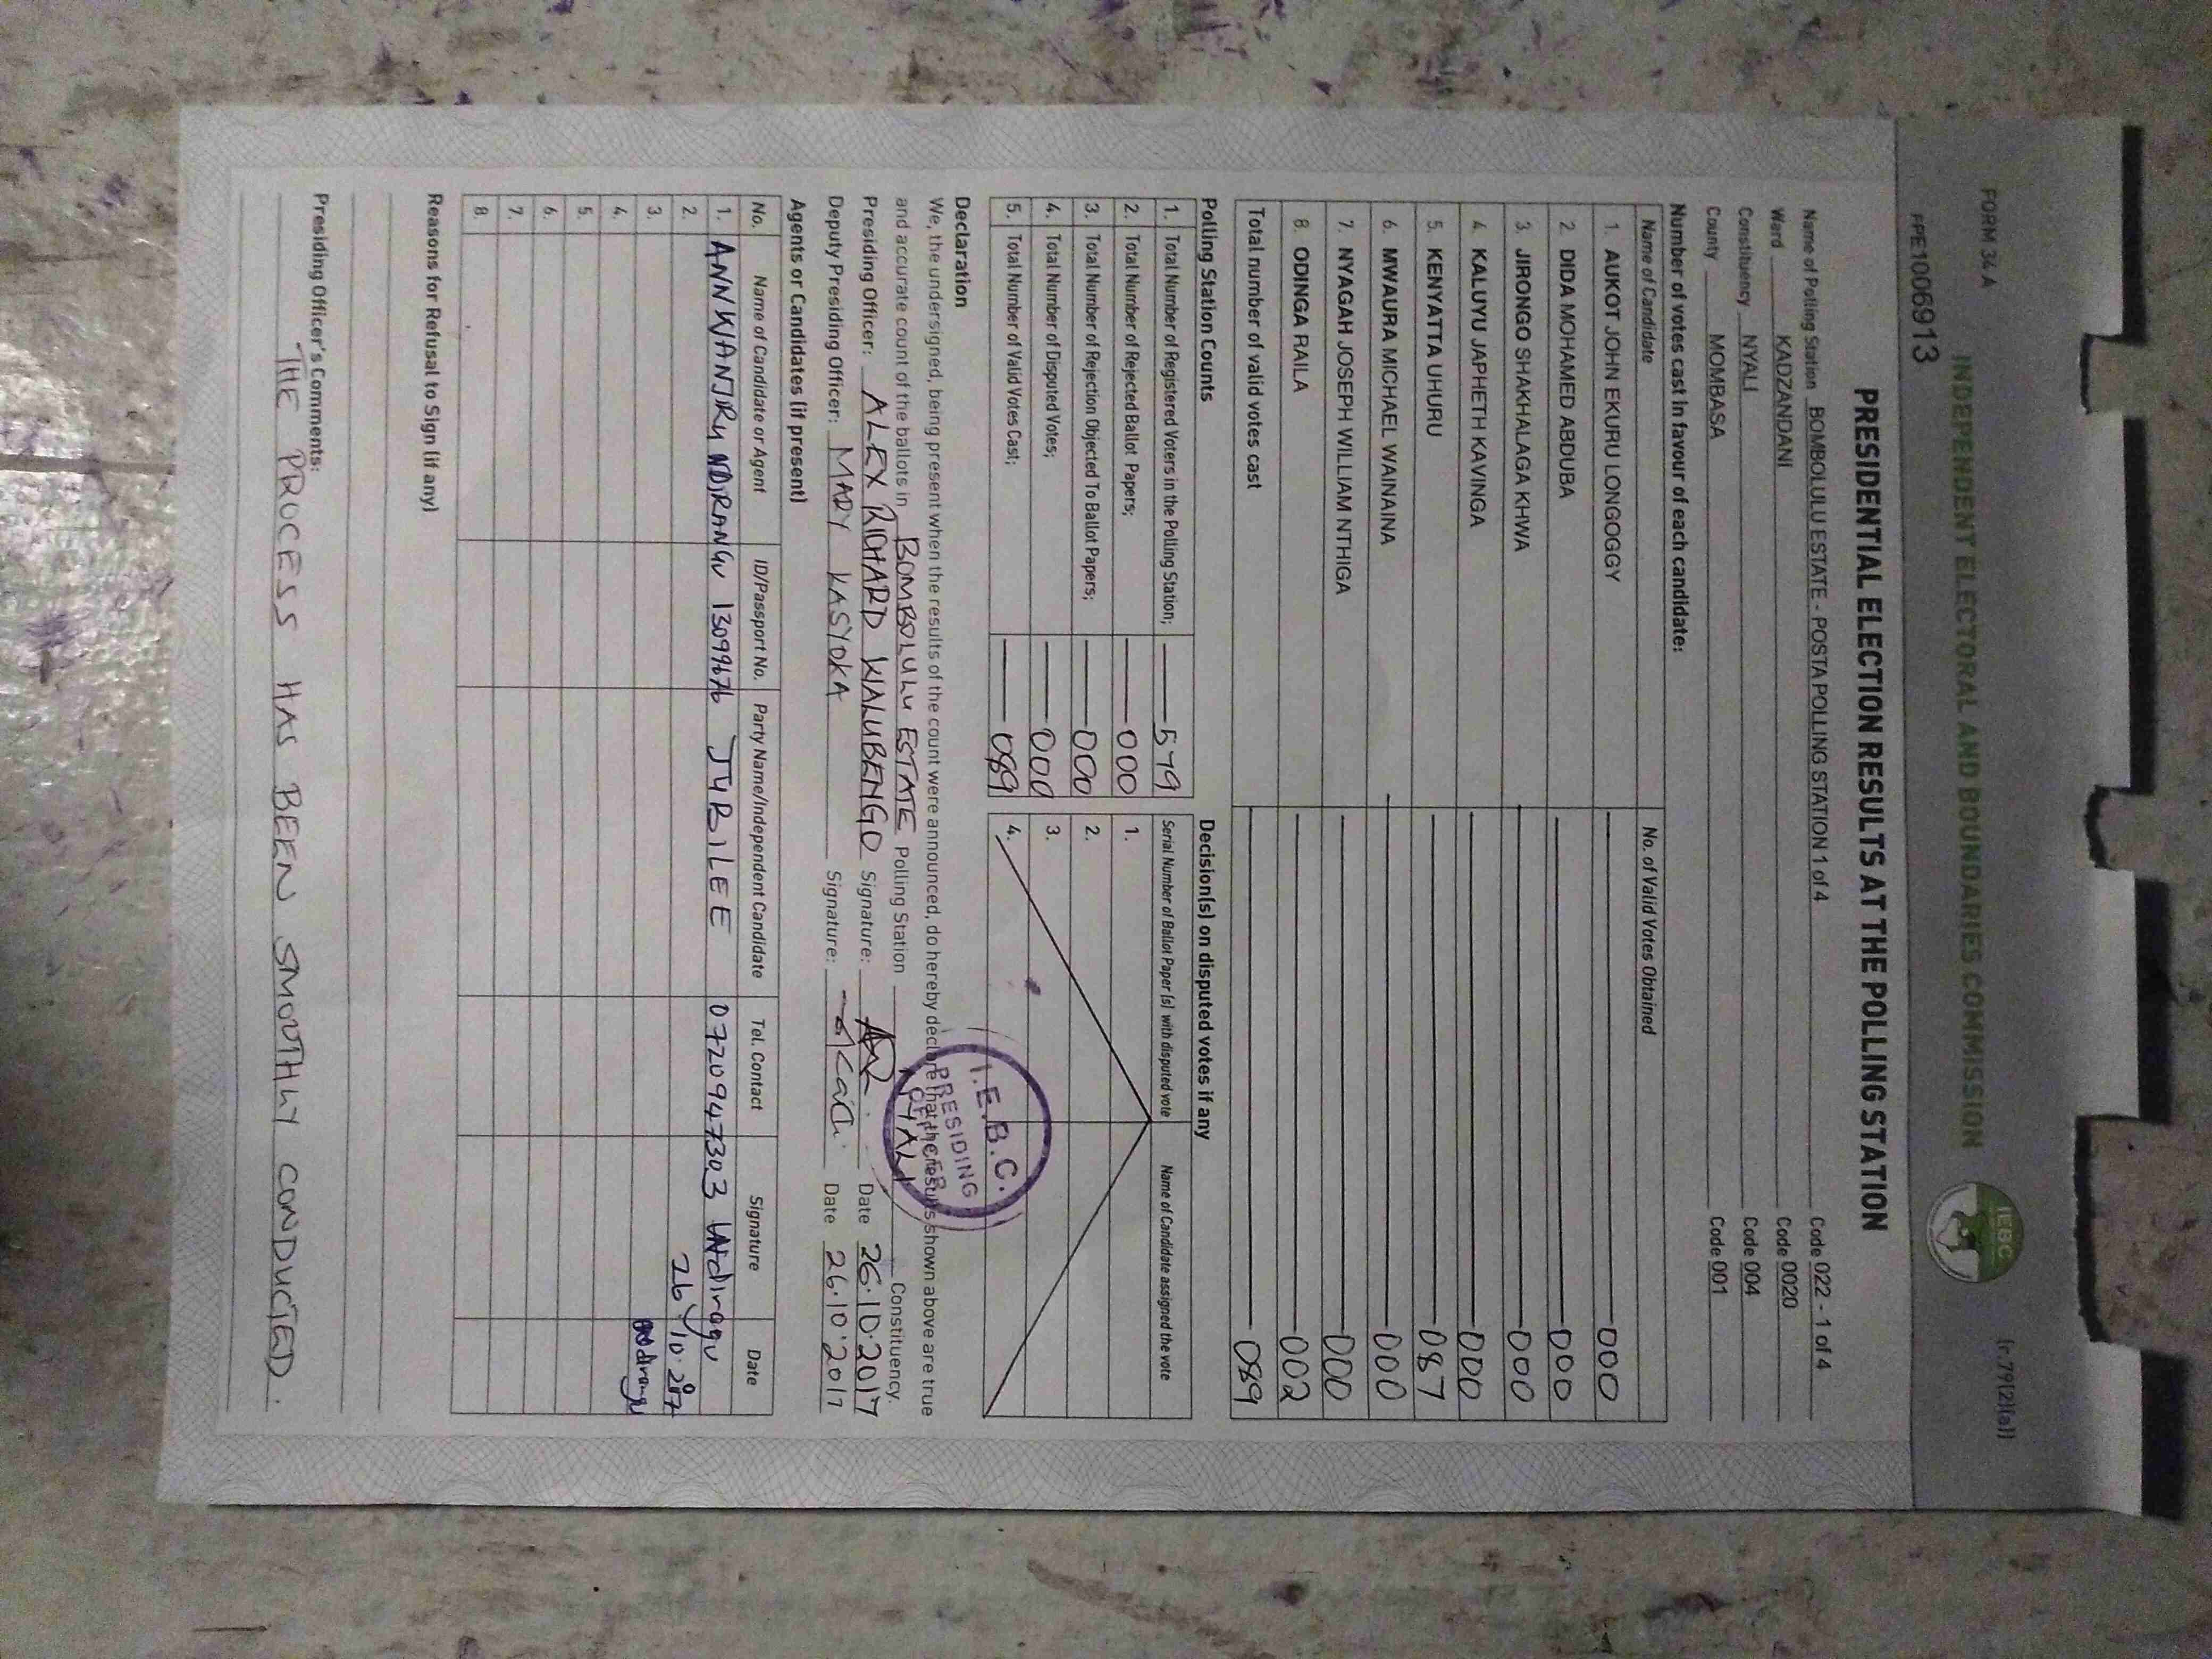 FORM 34A
(r.79(2)(a))
INDEPENDENT ELECTORAL AND BOUNDARIES COMMISSION
IEBC
PPE1006913
PRESIDENTIAL ELECTION RESULTS AT THE POLLING STATION
Name of Polling Station BOMBOLULU ESTATE - POSTA POLLING STATION 1 of 4 Code 022 - 1 of 4
Ward KADZANDANI Code 0020
Constituency NYALI Code 004
County MOMBASA Code 001
Number of votes cast in favour of each candidate:
Name of Candidate No. of Valid Votes Obtained
1. AUKOT JOHN EKURU LONGOGGY 000
2. DIDA MOHAMED ABDUBA 000
3. JIRONGO SHAKHALAGA KHWA 000
4. KALUYU JAPHETH KAVINGA 000
5. KENYATTA UHURU 087
6. MWAURA MICHAEL WAINAINA 000
7. NYAGAH JOSEPH WILLIAM NTHIGA 000
8. ODINGA RAILA 002
Total number of valid votes cast 089
Polling Station Counts
1. Total Number of Registered Voters in the Polling Station; 579
2. Total Number of Rejected Ballot Papers; 000
3. Total Number of Rejection Objected To Ballot Papers; 000
4. Total Number of Disputed Votes; 000
5. Total Number of Valid Votes Cast; 089
Decision(s) on disputed votes if any
Serial Number of Ballot Paper (s) with disputed vote Name of Candidate assigned the vote
1.
2.
3.
4.
Declaration
We, the undersigned, being present when the results of the count were announced, do hereby declare that the results shown above are true
and accurate count of the ballots in BOMBOLULU ESTATE Polling Station NYALI Constituency.
I.E.B.C.
PRESIDING
OFFICER
Presiding Officer: ALEX RICHARD WALUBENGO Signature: Date 26.10.2017
Deputy Presiding Officer: MARY KASYOKA Signature: Date 26.10.2017
Agents or Candidates (if present)
No. Name of Candidate or Agent ID/Passport No. Party Name/Independent Candidate Tel. Contact Signature Date
1. ANN WANJIRU NDIRANGU 13099676 JUBILEE 0720947303 Ndirangu
2. 26/10.2017
3. Ndirangu
4.
5.
6.
7.
8.
Reasons for Refusal to Sign (if any)
Presiding Officer's Comments:
THE PROCESS HAS BEEN SMOOTHLY CONDUCTED.